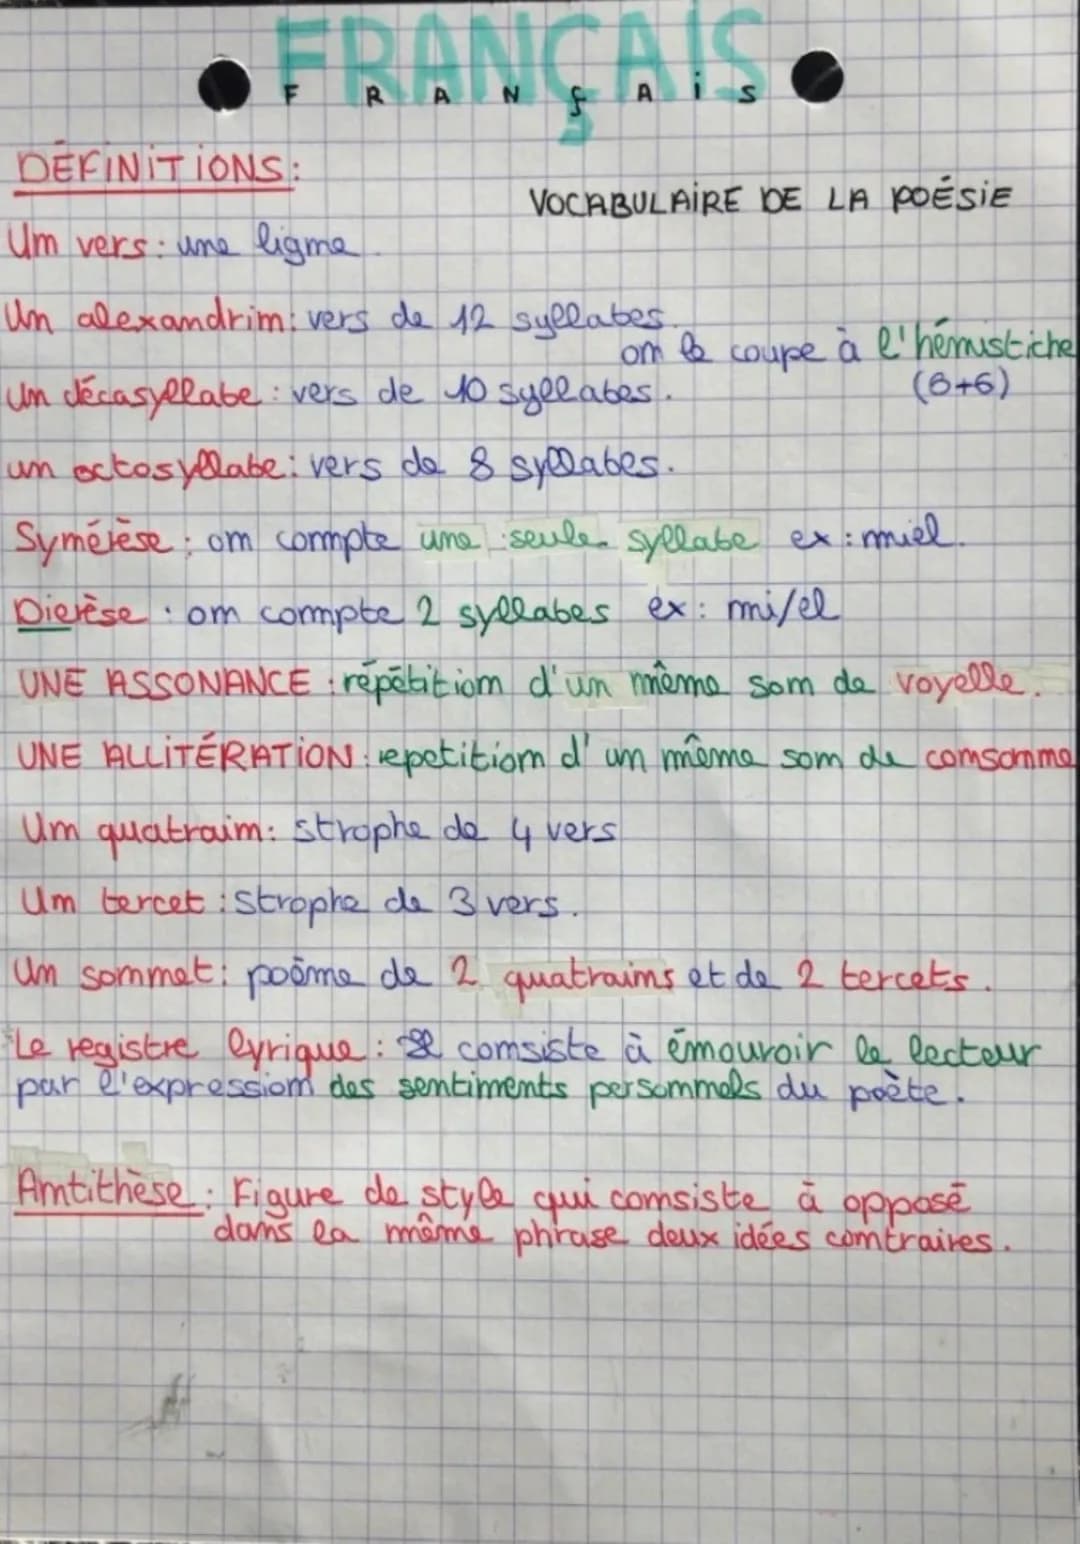 FRANÇAIS
FRANÇAIS
DÉFINITIONS:
VOCABULAIRE DE LA POÉSIE
Un vers : une ligne.
Un alexandrin: vers de 12 syllabes.
on le coupe à l'hémistiche
(6+6)
Un décasyllabe : vers de 10 syllabes.
un octosyllabe: vers de 8 syllabes.
Synérèse : on compte une seule syllabe ex: miel.
Dierèse : on compte 2 syllabes ex: mi/el
UNE ASSONANCE : répétition d'un même son de voyelle.
UNE ALLITÉRATION: repetition d'un même son de consonne
Un quatrain: strophe de 4 vers
Un tercet : Strophe de 3 vers.
Un sonnet: poème de 2 quatrains et de 2 tercets.
Le registre lyrique : consiste à émouvoir le lecteur
par l'expression des sentiments personnels du poète.
Antithèse : Figure de style qui consiste à opposé
dans la même phrase deux idées contraires.